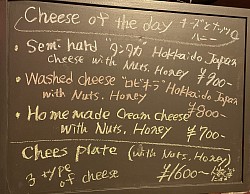 Cheese of the day チーズとナッツ
ハニー
• Semi hard "タンタカ" Hokkaido Japan
cheese with Nuts. Honey ¥900-
• Washed cheese "ロビオラ" Hokkaido Japan
with Nuts. Honey ¥800-
• Home made Cream cheese
with Nuts. Honey ¥700-
Chees plate (with Nuts. Honey)
3 type of cheese ¥1600~